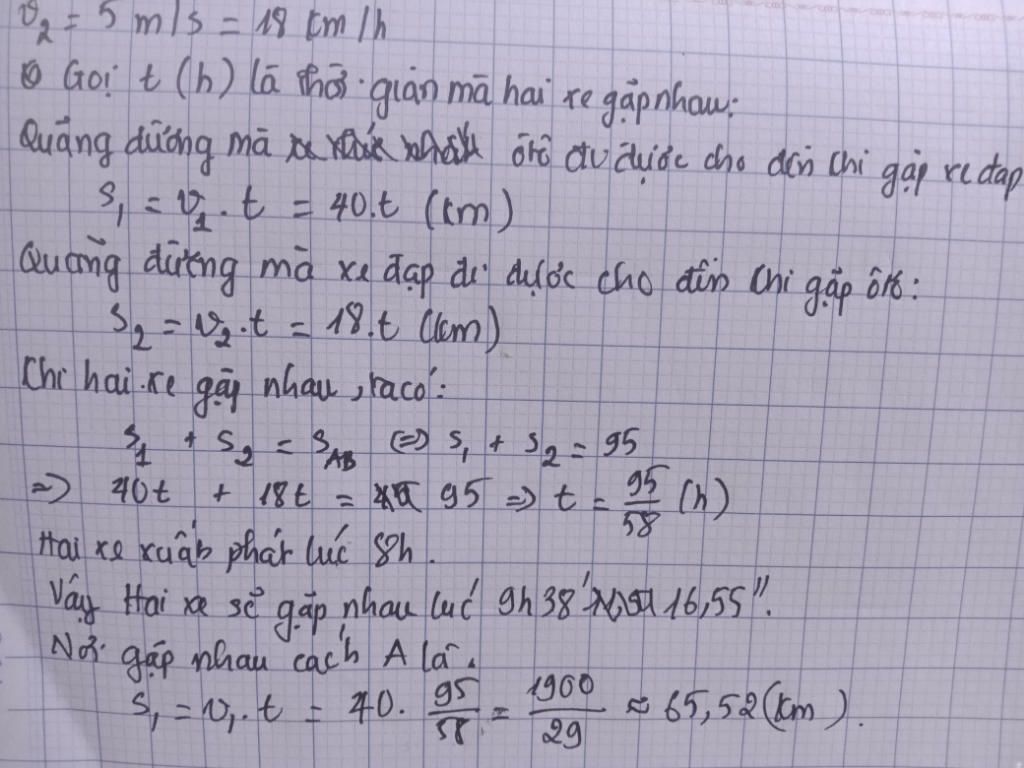 v₂ = 5 m/s = 18 km/h
Gọi t (h) là thời gian mà hai xe gặp nhau:
Quãng đường mà xe ôtô đi được cho đến khi gặp xe đạp
S₁ = v₁ . t = 40.t (km)
Quãng đường mà xe đạp đi được cho đến khi gặp ôtô:
S₂ = v₂.t = 18.t (km)
Khi hai xe gặp nhau, ta có:
S₁ + S₂ = S_AB <=> S₁ + S₂ = 95
=> 40t + 18t = 95 => t = 95/58 (h)
Hai xe xuất phát lúc 8h.
Vậy Hai xe sẽ gặp nhau lúc 9h 38' 16,55".
Nơi gặp nhau cách A là.
S₁ = v₁.t = 40. 95/58 = 1900/29 ≈ 65,52 (km).